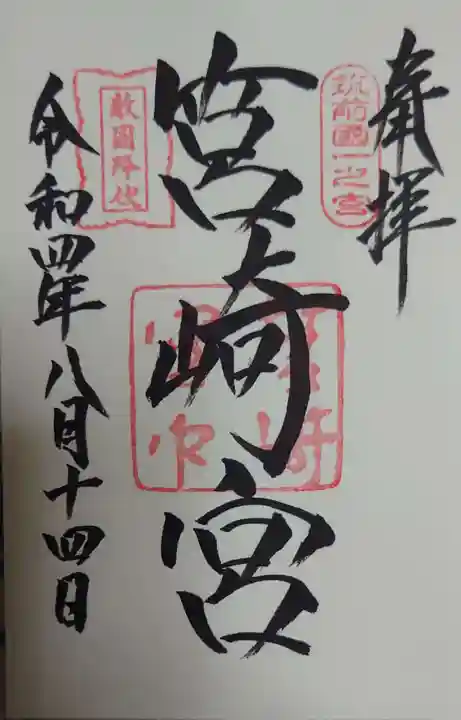 奉拝
筑前國一之宮
筥崎宮
筥崎
宮印
敵國降伏
令和四年八月十四日